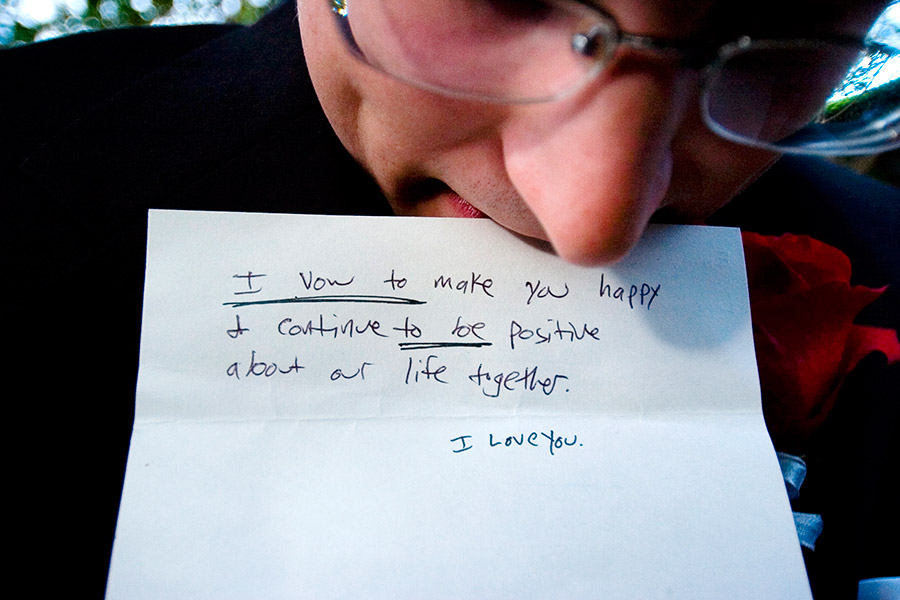 I Vow to make you happy
& continue to be positive
about our life together.
I Love you.